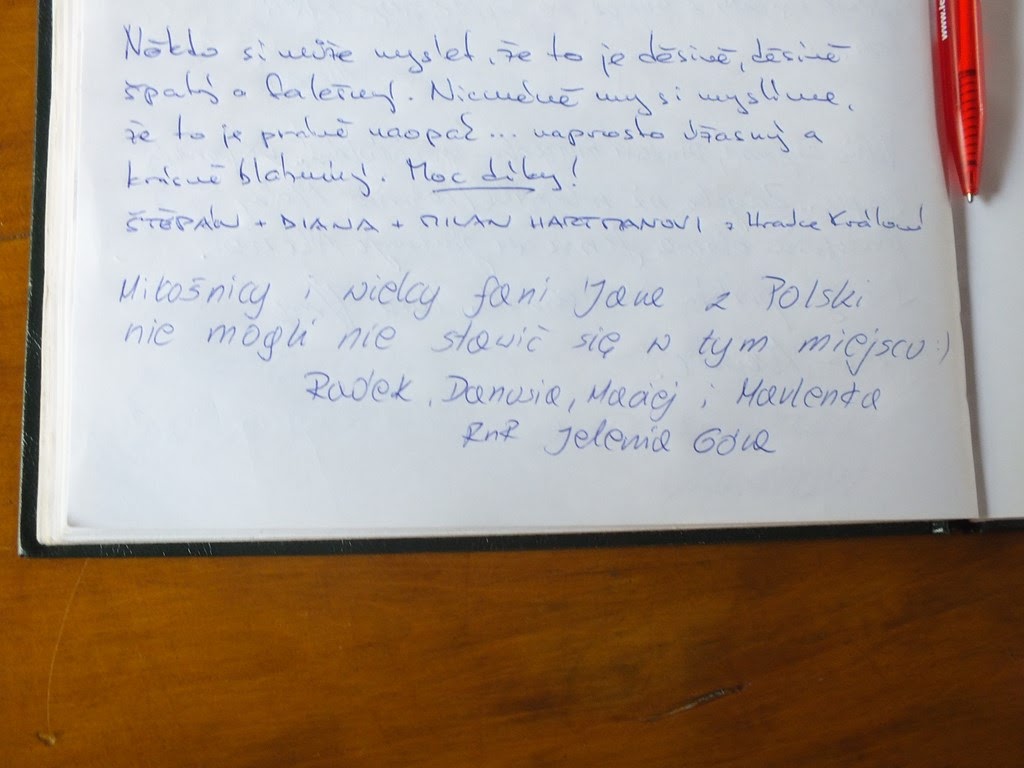 Někdo si může myslet, že to je děsivě, děsivě
špatný a falešný. Nicméně my si myslíme,
že to je právě naopak... naprosto úžasný a
krásně blahivý. Moc díky!
ŠTĚPÁN + DIANA + MILAN HARTMANOVI z Hradce Králové
Miłośnicy i wielcy fani Jawa z Polski
nie mogli nie stawić się w tym miejscu :)
Radek, Danusia, Maciej i Marlenta
RnR Jelenia Góra